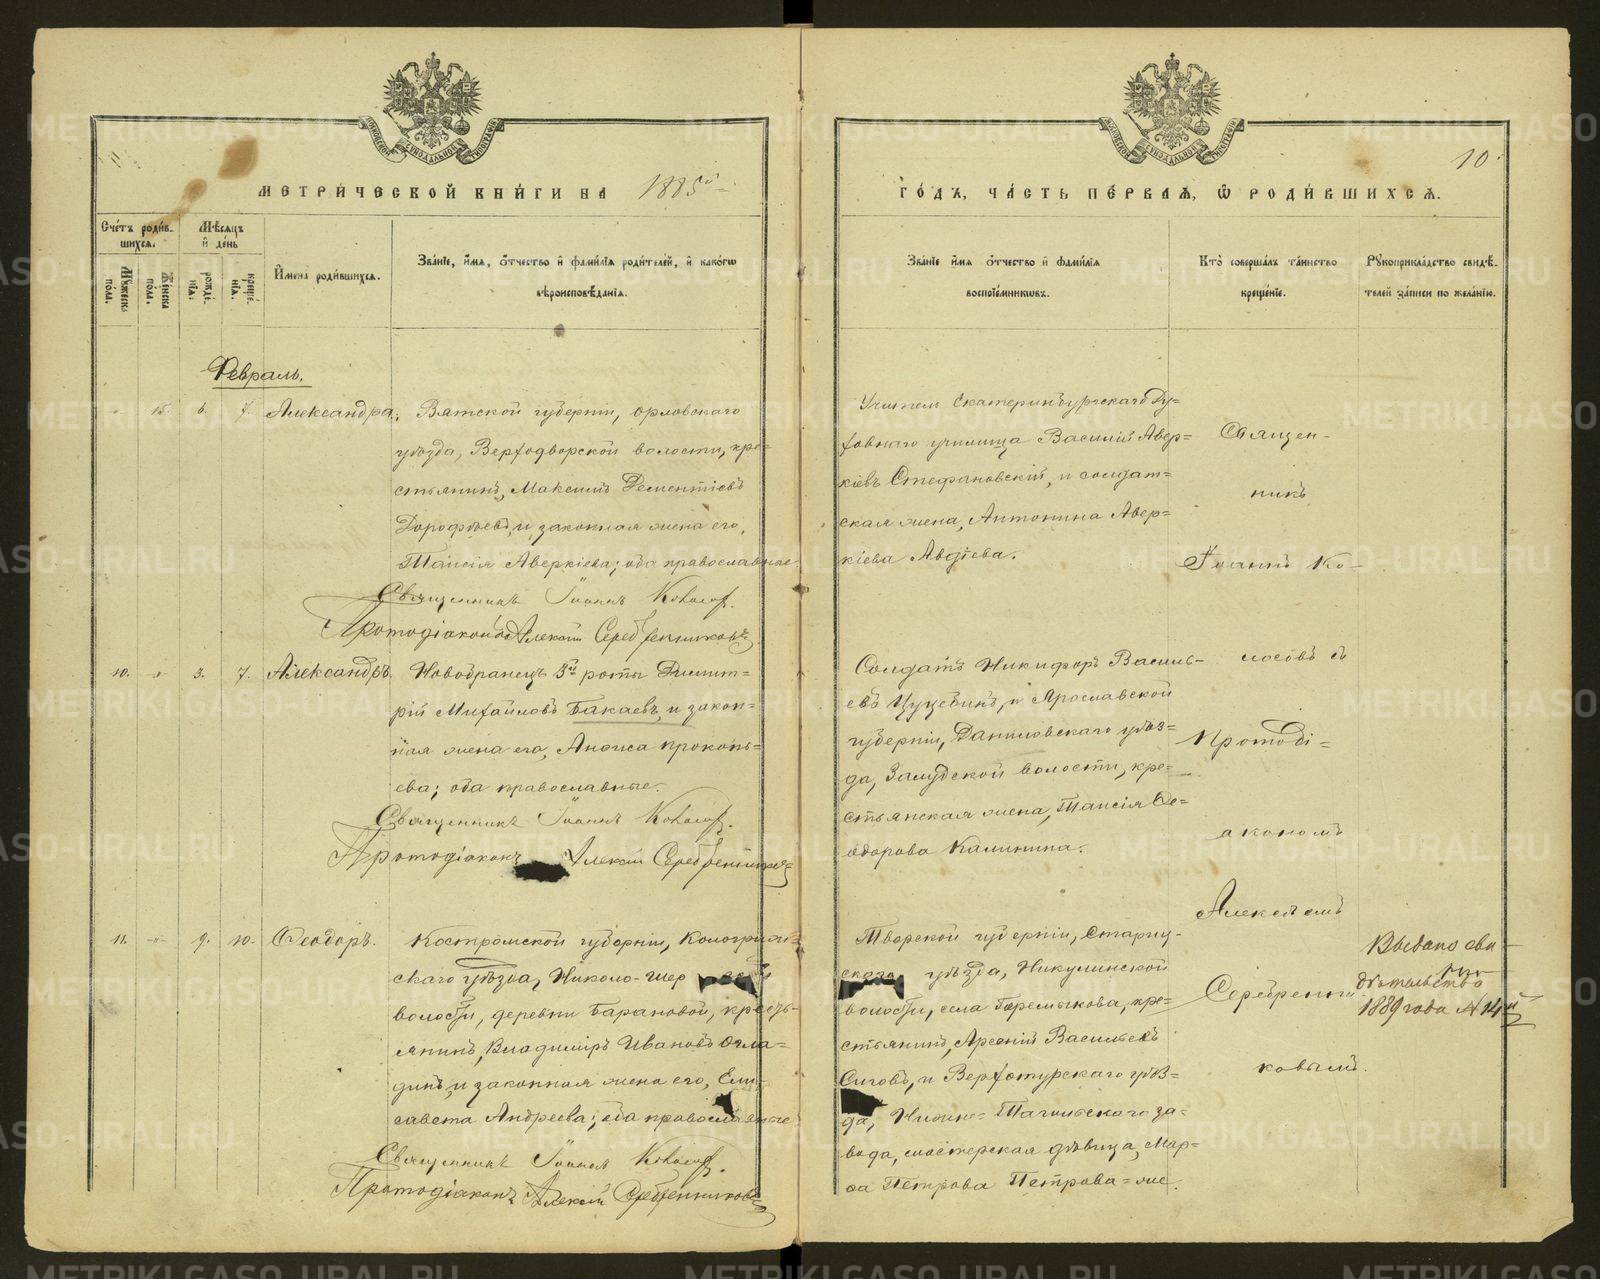 МЕТРИЧЕСКОЙ КНИГИ НА 1885й
ГОДЪ, ЧАСТЬ ПЕРВАЯ, Ѿ РОДИВШИХСЯ.
10.
Счетъ родившихся.
Мужеска пола.
Женска пола.
Мѣсяцъ и день
рожденія.
крещенія.
Имена родившихся.
Званіе, имя, отчество и фамилія родителей, и какогѡ
вѣроисповѣданія.
Званіе имя отчество и фамилія
воспріемниковъ.
Кто совершалъ таинство
крещеніе.
Рукоприкладство свидѣ-
телей записи по желанію.
Февраль.
15. 6. 7. Александра.
Вятской губерніи, Орловскаго
уѣзда, Верходворской волости, кре-
стьянинъ, Максимъ Дементіевъ
Дорофѣевъ, и законная жена его,
Таисія Аверкіева; оба православные.
Священникъ Іоаннъ
Протодіаконъ Алексій Серебренниковъ
Учитель Екатеринбургскаго Ду-
ховнаго училища Василій Авер-
кіевъ Стефановскій, и солдат-
ская жена, Антонина Авер-
кіева Авдіева.
10. -"- 3. 7. Александръ.
Новобранецъ 3й роты Димит-
рій Михайловъ Бакаевъ, и закон-
ная жена его, Анѳиса Прокопь-
ева; оба православные.
Священникъ Іоаннъ
Протодіаконъ Алексій Серебренниковъ
Солдатъ Никифоръ Василь-
евъ и Ярославской
губерніи, Даниловскаго уѣз-
да, волости, кре-
стьянская жена, Таисія Ѳе-
одорова Калинина.
11. -"- 9. 10. Ѳеодоръ.
Костромской губерніи, Кологрив-
скаго уѣзда, Николо-
волости, деревни Барановой, кресть-
янинъ, Владиміръ Ивановъ
и законная жена его, Ели-
савета Андреева; оба православные
Священникъ Іоаннъ
Протодіаконъ Алексій Серебренниковъ
Тверской губерніи, Стариц-
скаго уѣзда, Никулинской
волости, села кре-
стьянинъ, Арсеній Васильевъ
и Верхотурскаго уѣз-
да, Нижне-Тагильскаго за-
вода, мастерская дѣвица, Мар-
ѳа Петрова
Священ-
никъ
Іоаннъ Ко-
съ
Протоді-
акономъ
Алексѣемъ
Серебренни-
ковымъ.
Выдано сви-
дѣтельство
1889 года № 14